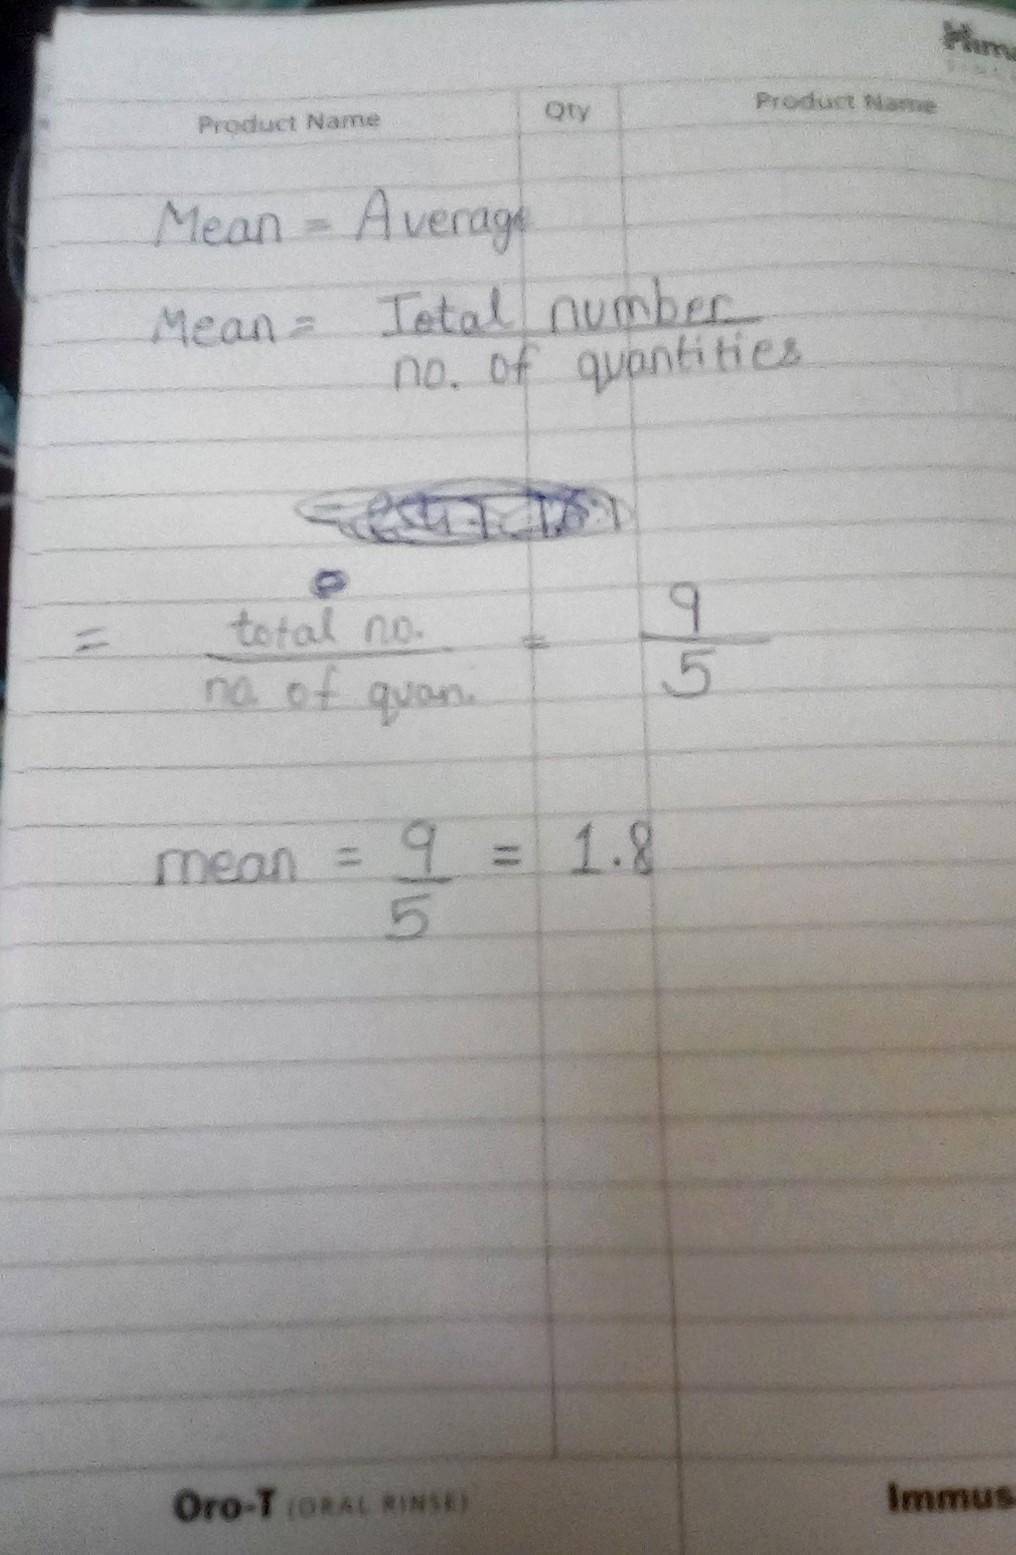 Product Name Qty Product Name
Mean = Average
Mean = Total number
no. of quantities
= total no. = 9
no. of quan. 5
mean = 9 = 1.8
5
Oro-T (ORAL RINSE) Immus